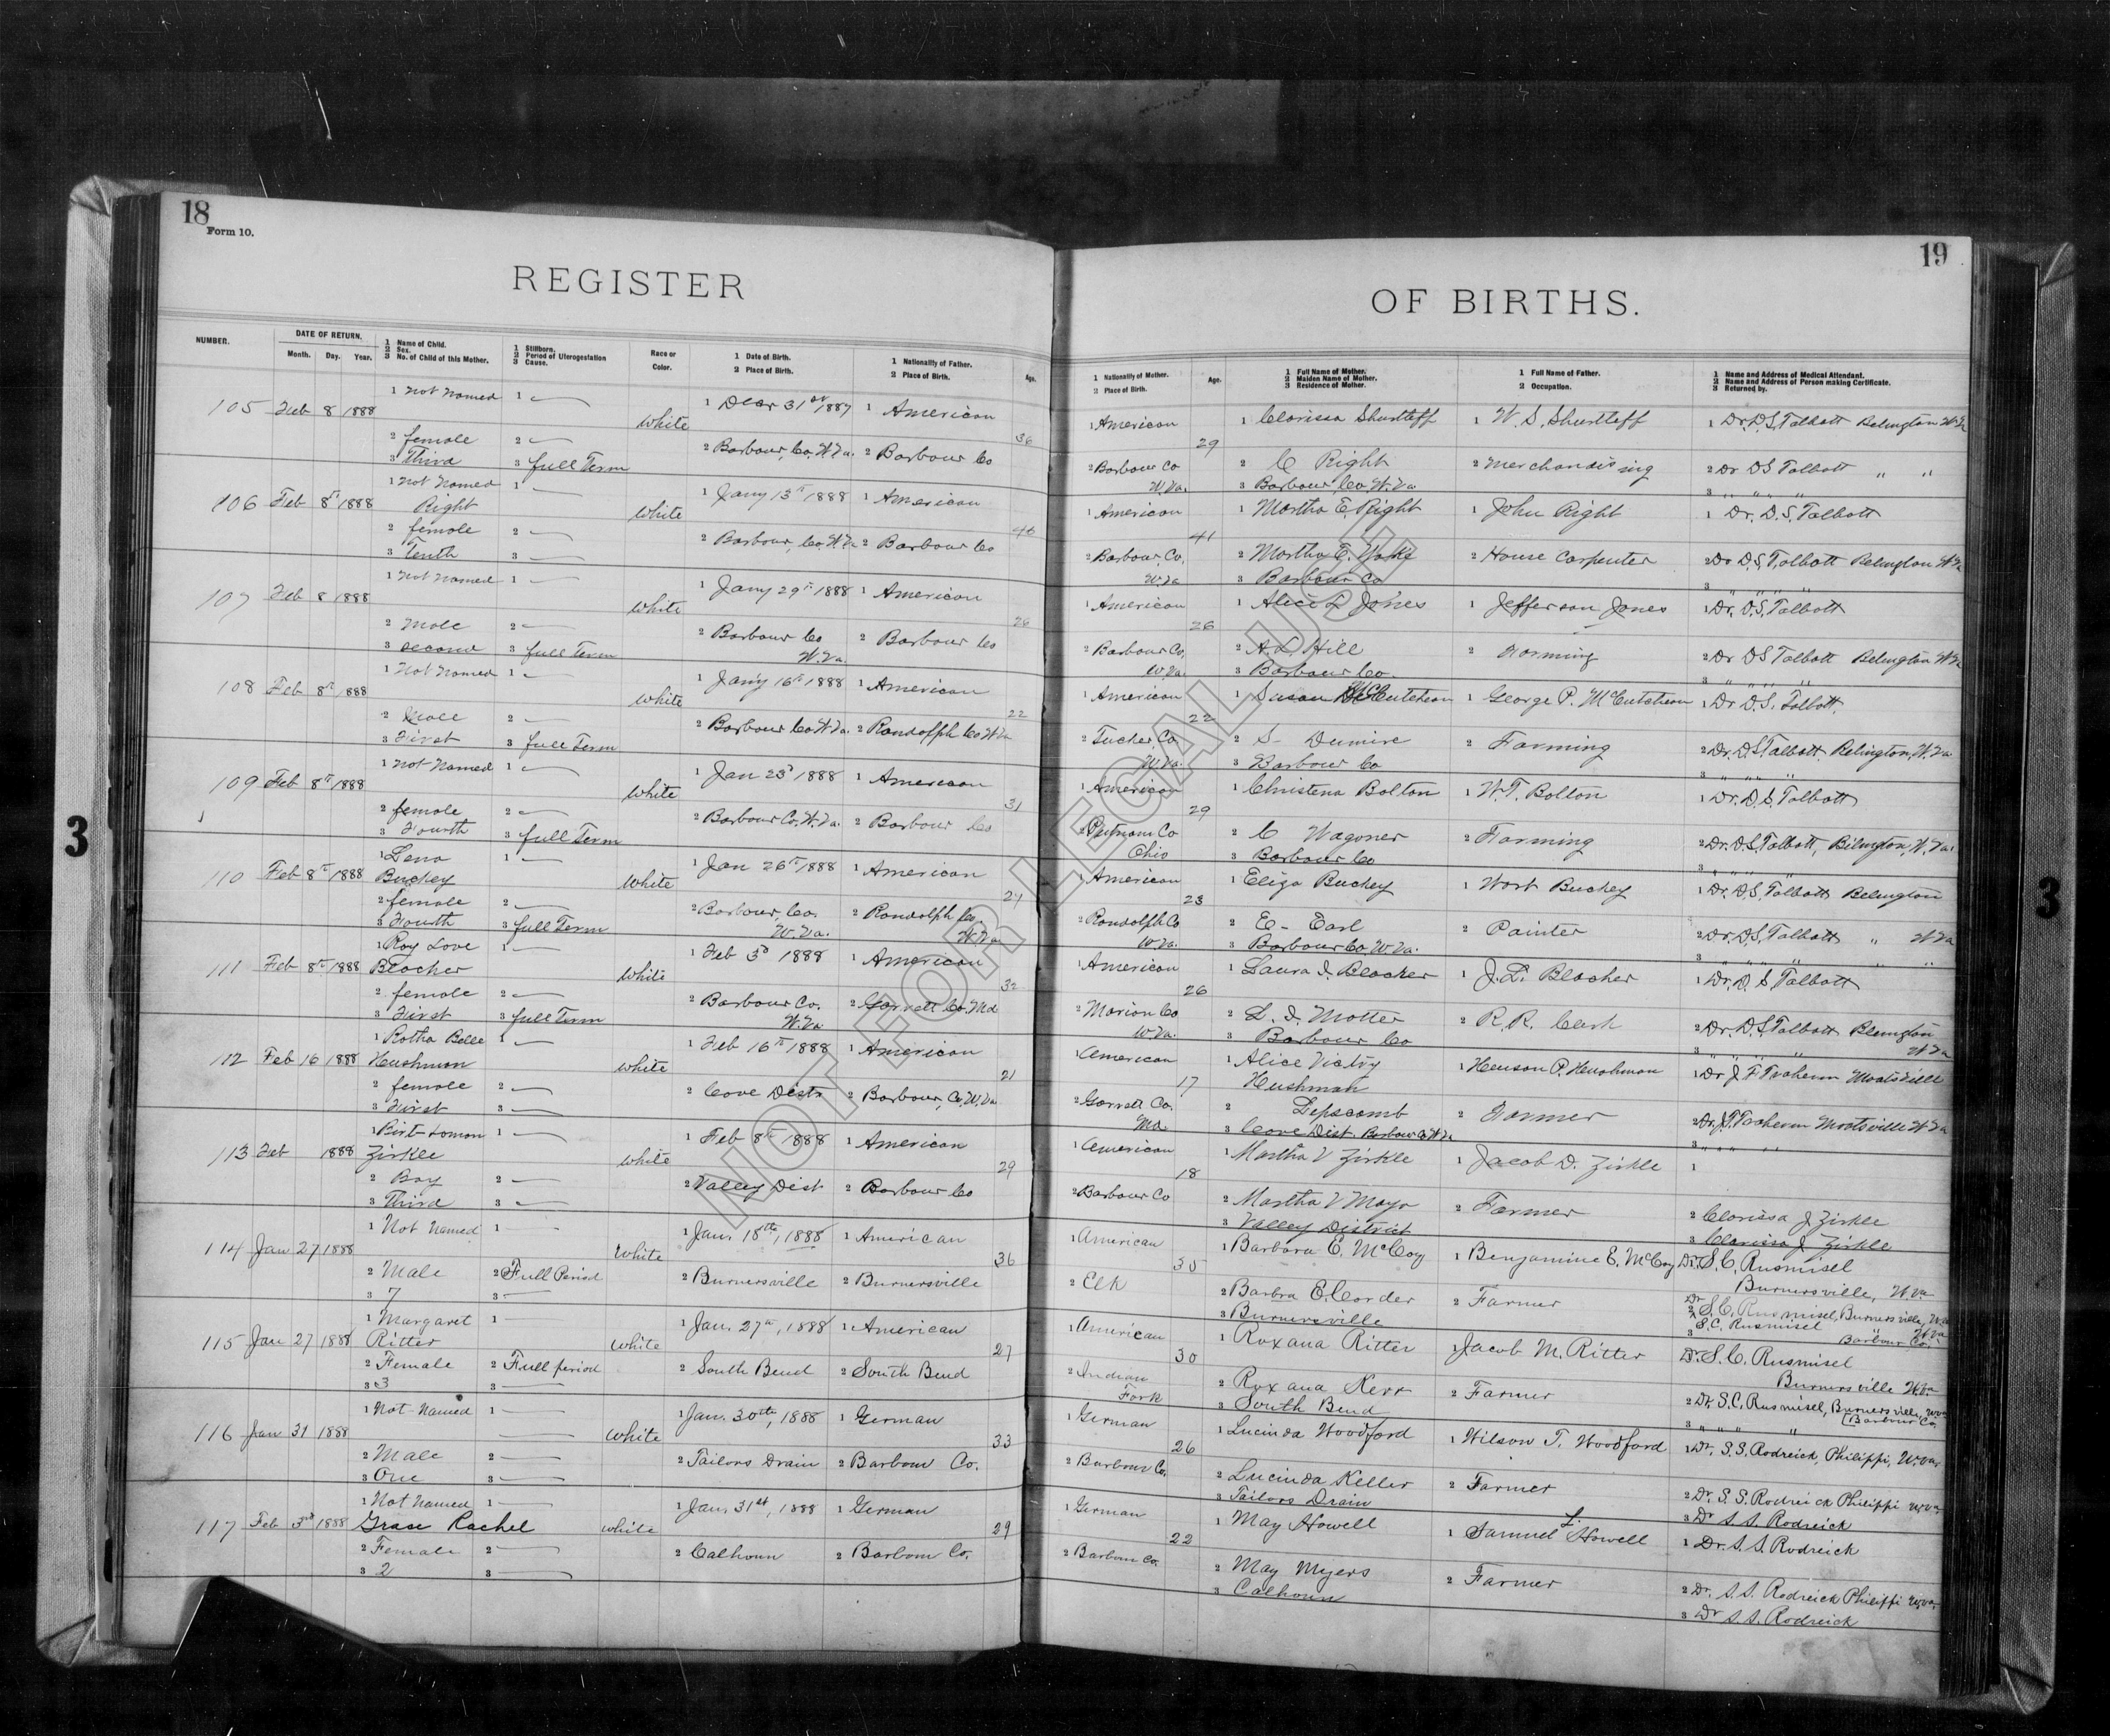 18
Form 10.
REGISTER
NUMBER.
DATE OF RETURN.
Month. Day. Year.
1 Name of Child.
2 Sex.
3 No. of Child of this Mother.
1 Stillborn.
2 Period of Uterogestation
3 Cause.
Race or
Color.
1 Date of Birth.
2 Place of Birth.
1 Nationality of Father.
2 Place of Birth.
Age.
105 Feb 8 1888 1 Not Named 1 White 1 Decr 31st 1887 1 American 36
2 female 2 2 Barbour, Co, W.Va. 2 Barbour Co
3 Third 3 full Term
106 Feb 8th 1888 1 Not Named 1 White 1 Jany 13th 1888 1 American
Right
2 female 2 2 Barbour, Co, W.Va 2 Barbour Co
3 Tenth 3
107 Feb 8 1888 1 Not Named 1 White 1 Jany 29th 1888 1 American 26
2 Male 2 2 Barbour Co 2 Barbour Co
3 second 3 full Term W.Va.
108 Feb 8th 1888 1 Not Named 1 White 1 Jany 16th 1888 1 American 22
2 Male 2 2 Barbour Co W.Va. 2 Randolph Co W.Va
3 First 3 full Term
109 Feb 8th 1888 1 Not Named 1 White 1 Jan 23d 1888 1 American 31
2 female 2 2 Barbour Co, W.Va. 2 Barbour Co
3 Fourth 3 full Term
110 Feb 8th 1888 1 Lena 1 White 1 Jan 26th 1888 1 American
Buckey
2 female 2 2 Barbour, Co. 2 Randolph Co.
3 Fourth 3 full Term W.Va. W.Va
111 Feb 8th 1888 1 Roy Love 1 White 1 Feb 3d 1888 1 American 32
Blocher
2 female 2 2 Barbour Co. 2 Garrett Co, Md
3 First 3 full Term W.Va
112 Feb 16 1888 1 Rotha Belle 1 White 1 Feb 16th 1888 1 American 21
Hushman
2 female 2 2 Cove Dist 2 Barbour, Co, W.Va
3 First 3
113 Feb 1888 1 1 White 1 Feb 8th 1888 1 American 29
Zirkle
2 Boy 2 2 Valley Dist 2 Barbour Co
3 Third 3
114 Jan 27 1888 1 Not Named 1 White 1 Jan. 18th, 1888 1 American 36
2 Male 2 Full Period 2 Burnersville 2 Burnersville
3 7 3
115 Jan 27 1888 1 Margaret 1 White 1 Jan. 27th, 1888 1 American 27
Ritter
2 Female 2 Full period 2 South Bend 2 South Bend
3 3 3
116 Jan 31 1888 1 Not Named 1 White 1 Jan. 30th, 1888 1 German 33
2 Male 2 2 Tailors Drain 2 Barbour Co.
3 One 3
117 Feb 3rd 1888 1 Not Named 1 White 1 Jan. 31st, 1888 1 German 29
Grase Rachel
2 Female 2 2 Calhoun 2 Barbour Co.
3 2 3
19
OF BIRTHS.
1 Nationality of Mother.
2 Place of Birth.
Age.
1 Full Name of Mother.
2 Maiden Name of Mother.
3 Residence of Mother.
1 Full Name of Father.
2 Occupation.
1 Name and Address of Medical Attendant.
2 Name and Address of Person making Certificate.
3 Returned by.
1 American 29 1 Clarissa Shurtleff 1 W. S. Shurtleff 1 Dr. D. S. Talbott Belington W.Va
2 Barbour Co 2 C Right 2 Merchandising 2 Dr D S Talbott " "
W.Va. 3 Barbour, Co, W.Va 3 " " " "
1 American 41 1 Martha E. Right 1 John Right 1 Dr. D. S. Talbott
2 Barbour, Co, 2 Martha E. 2 House Carpenter 2 Dr D. S. Talbott Belington W.Va
W.Va 3 Barbour Co 3 " " " "
1 American 26 1 Alice L Jones 1 Jefferson Jones 1 Dr. D. S. Talbott
2 Barbour Co, 2 A. L. Hill 2 Farming 2 Dr D S Talbott Belington W.Va
W.Va. 3 Barbour Co. 3 " " " "
1 American 22 1 Susan McCutcheon 1 George P. McCutcheon 1 Dr D. S. Talbott.
2 Tucker, Co, 2 S- Dumire 2 Farming 2 Dr. D. S. Talbott. Belington, W.Va
W.Va. 3 Barbour Co 3 " " " "
1 American 29 1 Christena Bolton 1 W. T. Bolton 1 Dr. D. S. Talbott
2 Putnam Co 2 C Wagoner 2 Farming 2 Dr. D. S. Talbott, Bilington, W.Va.
Ohio 3 Barbour Co 3 " " " "
1 American 23 1 Eliza Buckey 1 Wort Buckey 1 Dr. D. S. Talbott Belington
2 Randolph Co 2 E- Earl 2 Painter 2 Dr. D. S. Talbott " W.Va
W.Va. 3 Barbour Co, W.Va. 3 " " " " " "
1 American 26 1 Laura I. Blocher 1 J. L. Blocher 1 Dr. D. S. Talbott
2 Marion Co 2 L. I. Motter 2 R. R. Clerk 2 Dr. D. S. Talbott Belington
W.Va. 3 Barbour Co 3 " " " " W.Va
1 American 17 1 Alice Victry 1 Henson P. Hushman 1 Dr J F Trahern Moatsville
Hushman
2 Garrett Co. 2 Lepscomb 2 Farmer 2 Dr. J. F. Trahern Moatsville W.Va
Md. 3 Cove Dist. Barbour Co W.Va 3 " " " "
1 American 18 1 Martha V Zirkle 1 Jacob D. Zirkle 1
2 Barbour Co 2 Martha V Mayo 2 Farmer 2 Clorissa J Zirkle
3 Valley District 3 Clarissa J Zirkle
1 American 35 1 Barbara E. McCoy 1 Benjamine E. McCoy Dr. S. C. Rusmisel
Burnersville, W.Va
2 Elk 2 Barbra E. Corder 2 Farmer 2 Dr S. C. Rusmisel, Burnersville, W.Va
3 Burnersville 3 S. C. Rusmisel Barbour Co. W.Va
1 American 30 1 Roxana Ritter 1 Jacob M. Ritter Dr. S. C. Rusmisel
Burnersville W.Va
2 Indian 2 Roxana Kerr 2 Farmer 2 Dr. S. C. Rusmisel, Burnersville, W.Va
Fork 3 South Bend 3 " " " " (Barbour Co.
1 German 26 1 Lucinda Woodford 1 Wilson T. Woodford 1 Dr. S. S. Rodreick, Philippi, W.Va,
2 Barbour Co. 2 Lucinda Keller 2 Farmer 2 Dr. S. S. Rodreick Philippi W.Va.
3 Tailors Drain 3 Dr S. S. Rodreick
1 German 22 1 May Howell 1 Samuel L. Howell 1 Dr. S. S. Rodreick
2 Barbour Co. 2 May Myers 2 Farmer 2 Dr. S. S. Rodreick Philippi W.Va.
3 Calhoun 3 Dr S. S. Rodreick
3
3
NOT FOR LEGAL USE